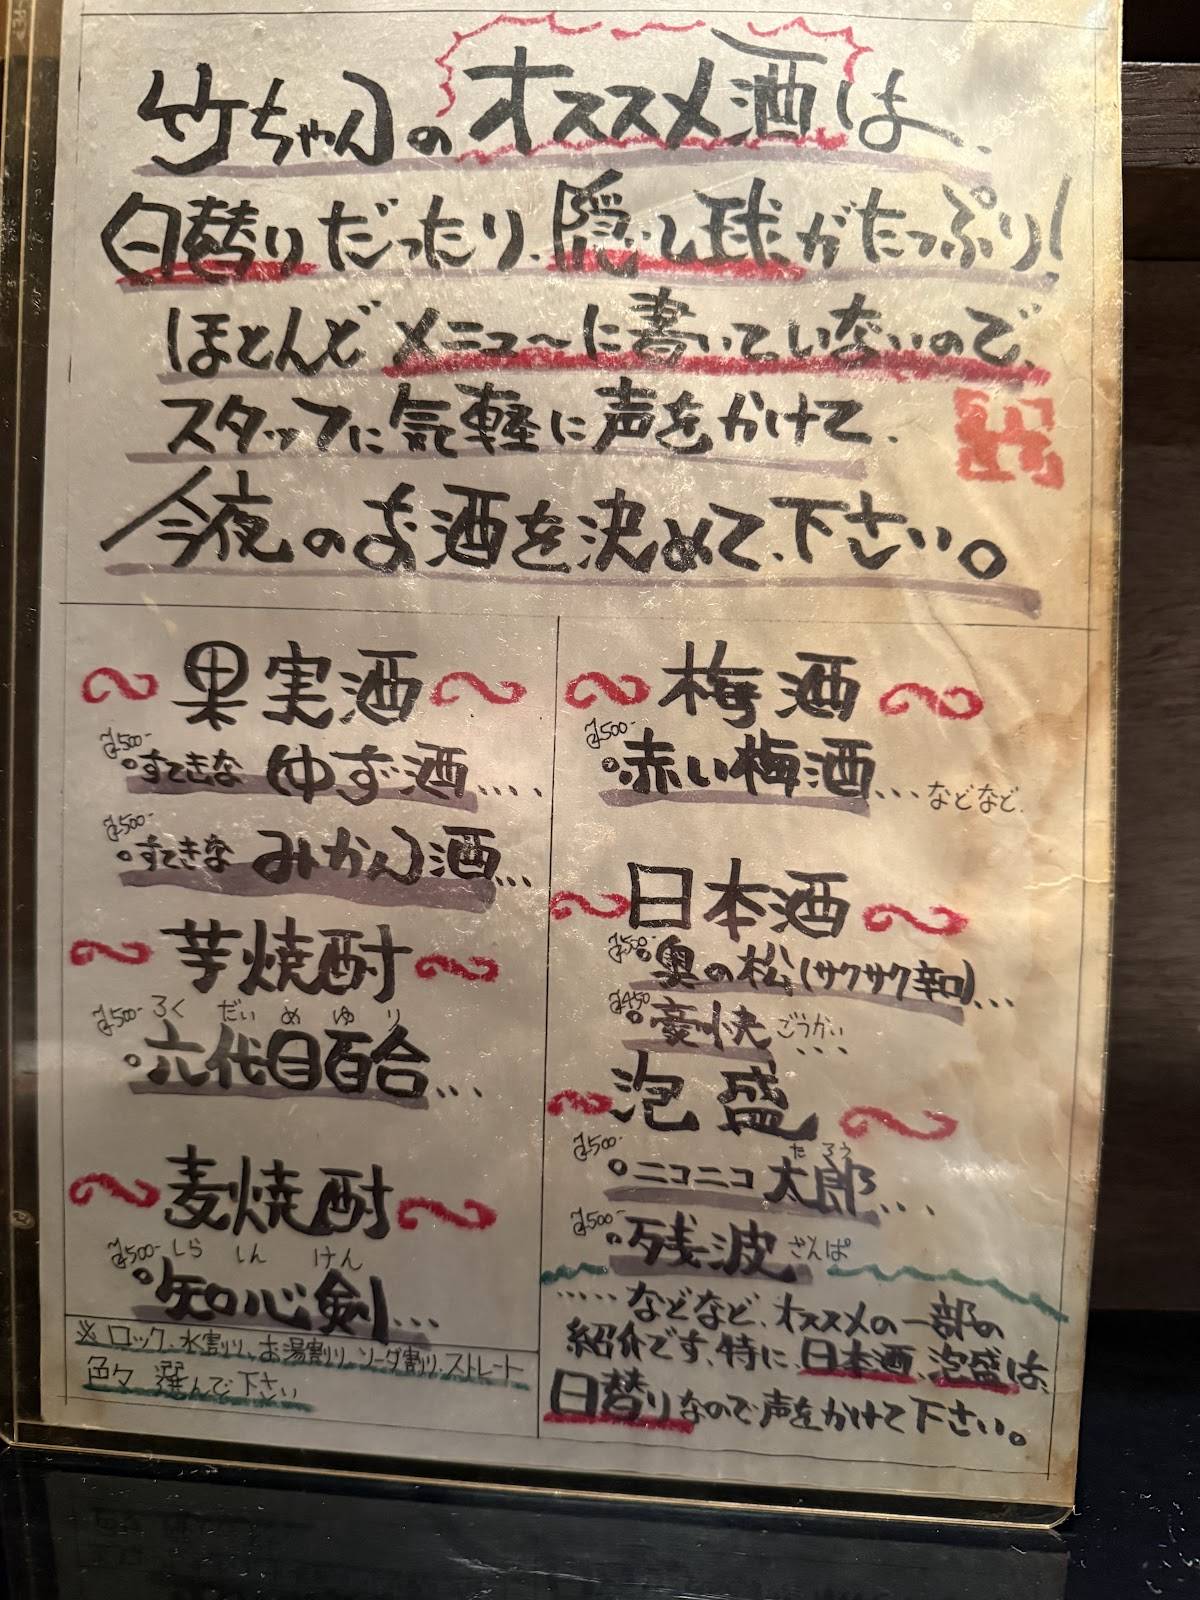 竹ちゃんのオススメ酒は、
日替りだったり、隠し球がたっぷり!
ほとんどメニューに書いていないので、
スタッフに気軽に声をかけて、
今夜のお酒を決めて下さい。
果実酒
¥500-
すてきなゆず酒....
¥500-
すてきなみかん酒...
芋焼酎
¥500-
ろくだいめゆり
六代目百合...
麦焼酎
¥500-
しらしんけん
知心剣...
※ロック、水割り、お湯割り、ソーダ割り、ストレート
色々選んで下さい
梅酒
¥500-
赤い梅酒...などなど.
日本酒
¥500-
奥の松(サクサク辛口)...
¥450
豪快ごうかい....
泡盛
¥500-
たろう
ニコニコ太郎....
¥500-
残波ざんぱ
.....などなど、オススメの一部の
紹介です、特に、日本酒、泡盛は、
日替りなので声をかけて下さい。